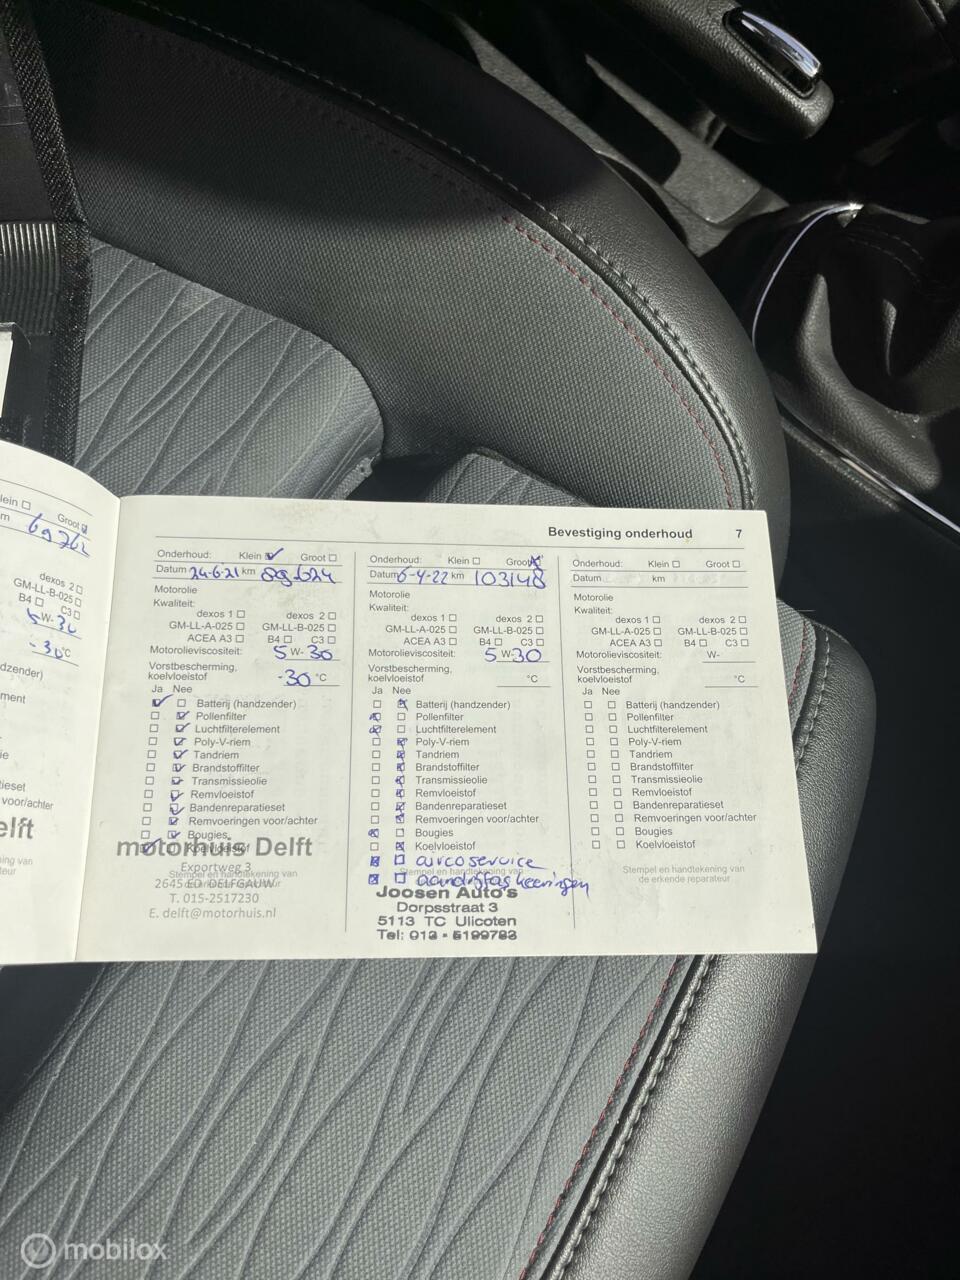 Bevestiging onderhoud 7
lein ☐ Groot ☑
m 69762
dexos 2 ☐
GM-LL-B-025 ☐
B4 ☐ C3 ☐
5 W- 30
-30 °C
dzender)
ment
ie
eset
voor/achter
elft
ing van
teur
Onderhoud: Klein ☑ Groot ☐
Datum 24-6-21 km 89.624
Motorolie
Kwaliteit:
dexos 1 ☐ dexos 2 ☐
GM-LL-A-025 ☐ GM-LL-B-025 ☐
ACEA A3 ☐ B4 ☐ C3 ☐
Motorolieviscositeit: 5 W- 30
Vorstbescherming,
koelvloeistof -30 °C
Ja Nee
☑ ☐ Batterij (handzender)
☐ ☑ Pollenfilter
☐ ☑ Luchtfilterelement
☐ ☑ Poly-V-riem
☐ ☑ Tandriem
☐ ☑ Brandstoffilter
☐ ☑ Transmissieolie
☐ ☑ Remvloeistof
☐ ☑ Bandenreparatieset
☐ ☑ Remvoeringen voor/achter
☐ ☑ Bougies
☑ ☐ Koelvloeistof
motorhuis Delft
Exportweg 3
Stempel en handtekening van
de erkende reparateur
2645 ED DELFGAUW
T. 015-2517230
E. delft@motorhuis.nl
Onderhoud: Klein ☐ Groot ☒
Datum 6-4-22 km 103148
Motorolie
Kwaliteit:
dexos 1 ☐ dexos 2 ☐
GM-LL-A-025 ☐ GM-LL-B-025 ☐
ACEA A3 ☐ B4 ☐ C3 ☐
Motorolieviscositeit: 5 W- 30
Vorstbescherming,
koelvloeistof °C
Ja Nee
☐ ☒ Batterij (handzender)
☒ ☐ Pollenfilter
☒ ☐ Luchtfilterelement
☐ ☒ Poly-V-riem
☐ ☒ Tandriem
☐ ☒ Brandstoffilter
☐ ☒ Transmissieolie
☐ ☒ Remvloeistof
☐ ☒ Bandenreparatieset
☐ ☒ Remvoeringen voor/achter
☒ ☐ Bougies
☐ ☒ Koelvloeistof
☒ ☐ aircoservice
Stempel en handtekening van
☒ ☐
Joosen Auto's
Dorpsstraat 3
5113 TC Ulicoten
Tel: 013 - 5199783
Onderhoud: Klein ☐ Groot ☐
Datum km
Motorolie
Kwaliteit:
dexos 1 ☐ dexos 2 ☐
GM-LL-A-025 ☐ GM-LL-B-025 ☐
ACEA A3 ☐ B4 ☐ C3 ☐
Motorolieviscositeit: W-
Vorstbescherming,
koelvloeistof °C
Ja Nee
☐ ☐ Batterij (handzender)
☐ ☐ Pollenfilter
☐ ☐ Luchtfilterelement
☐ ☐ Poly-V-riem
☐ ☐ Tandriem
☐ ☐ Brandstoffilter
☐ ☐ Transmissieolie
☐ ☐ Remvloeistof
☐ ☐ Bandenreparatieset
☐ ☐ Remvoeringen voor/achter
☐ ☐ Bougies
☐ ☐ Koelvloeistof
Stempel en handtekening van
de erkende reparateur
mobilox